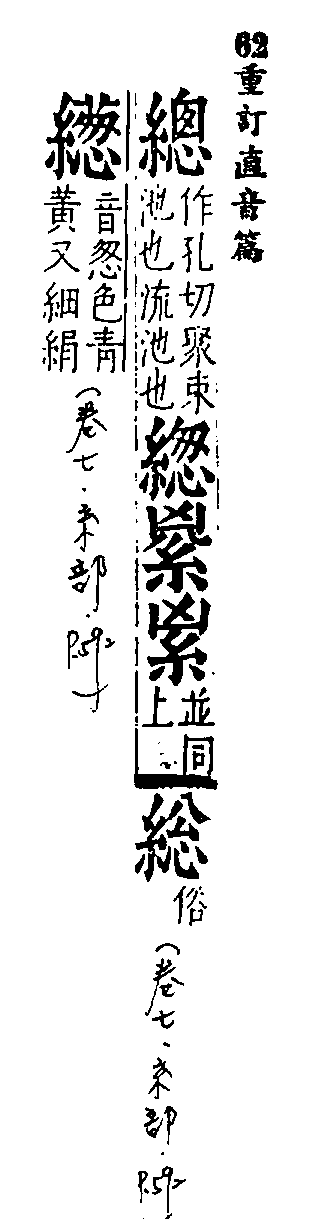 62重訂直音篇
總
作孔切聚束
也流池也
緫
並同
上
総
俗
（卷七．糸部．P.592
繱
音怱色青
黃又細絹
（卷七．糸部．P.592）